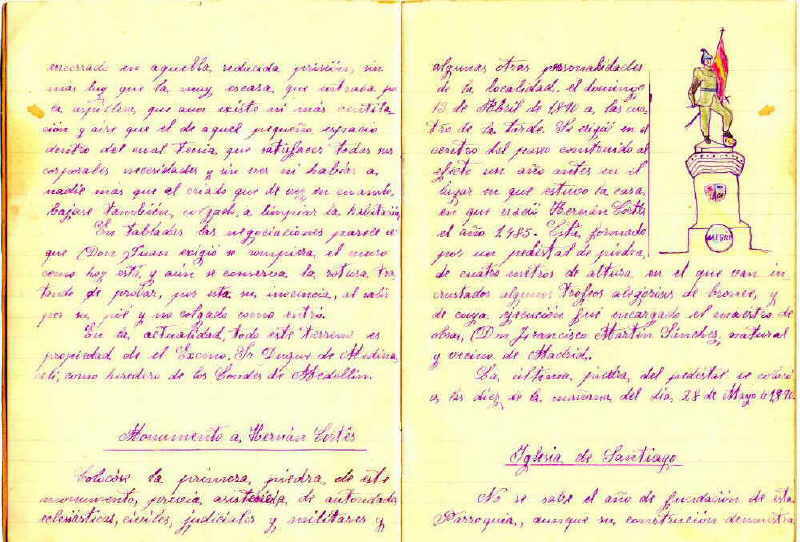 encerrado en aquella reducida prisión, sin
más luz que la muy escasa que entraba por
la aspillera, que aun existe ni más ventila
ción y aire que el de aquel pequeño espacio
dentro del cual tenía que satisfacer todas sus
corporales necesidades y sin ver ni hablar a
nadie mas que el criado que de vez en cuando
bajase también, colgado, a limpiar la habitación
Entabladas las negociaciones parece
que Don Juan exigió se rompiera el muro
como hoy está, y aun se conserva la rotura, tra
tando de probar, por esta su inocencia, al salir
por su pié y no colgado como entró.
En la actualidad, todo este terreno es
propiedad de el Excmo. Sr. Duque de Medina
celi, como heredero de los Condes de Medellín.
Monumento a Hernán Cortés
Colocóse la primera piedra de este
monumento, previa asistencia de autoridades
eclesiásticas, civiles, judiciales y militares y
algunas otras personalidades
de la localidad, el domingo
13 de Abril de 1890 a las cua
tro de la tarde. Se erigió en el
centro del paseo construido al
efecto un año antes en el
lugar en que estuvo la casa
en que nació Hernán Cortés
el año 1485. Está formado
por un pedestal de piedra,
de cuatro metros de altura en el que van in
crustados algunos trofeos alegóricos de bronce, y
de cuya ejecución fué encargado el maestro de
obras, Don Francisco Martín Sánchez, natural
y vecino de Madrid.
La última piedra del pedestal se colocó
a las diez de la mañana del día 28 de Mayo de 1890.
Iglesia de Santiago
No se sabe el año de fundación de esta
Parroquia, aunque su construcción demuestra